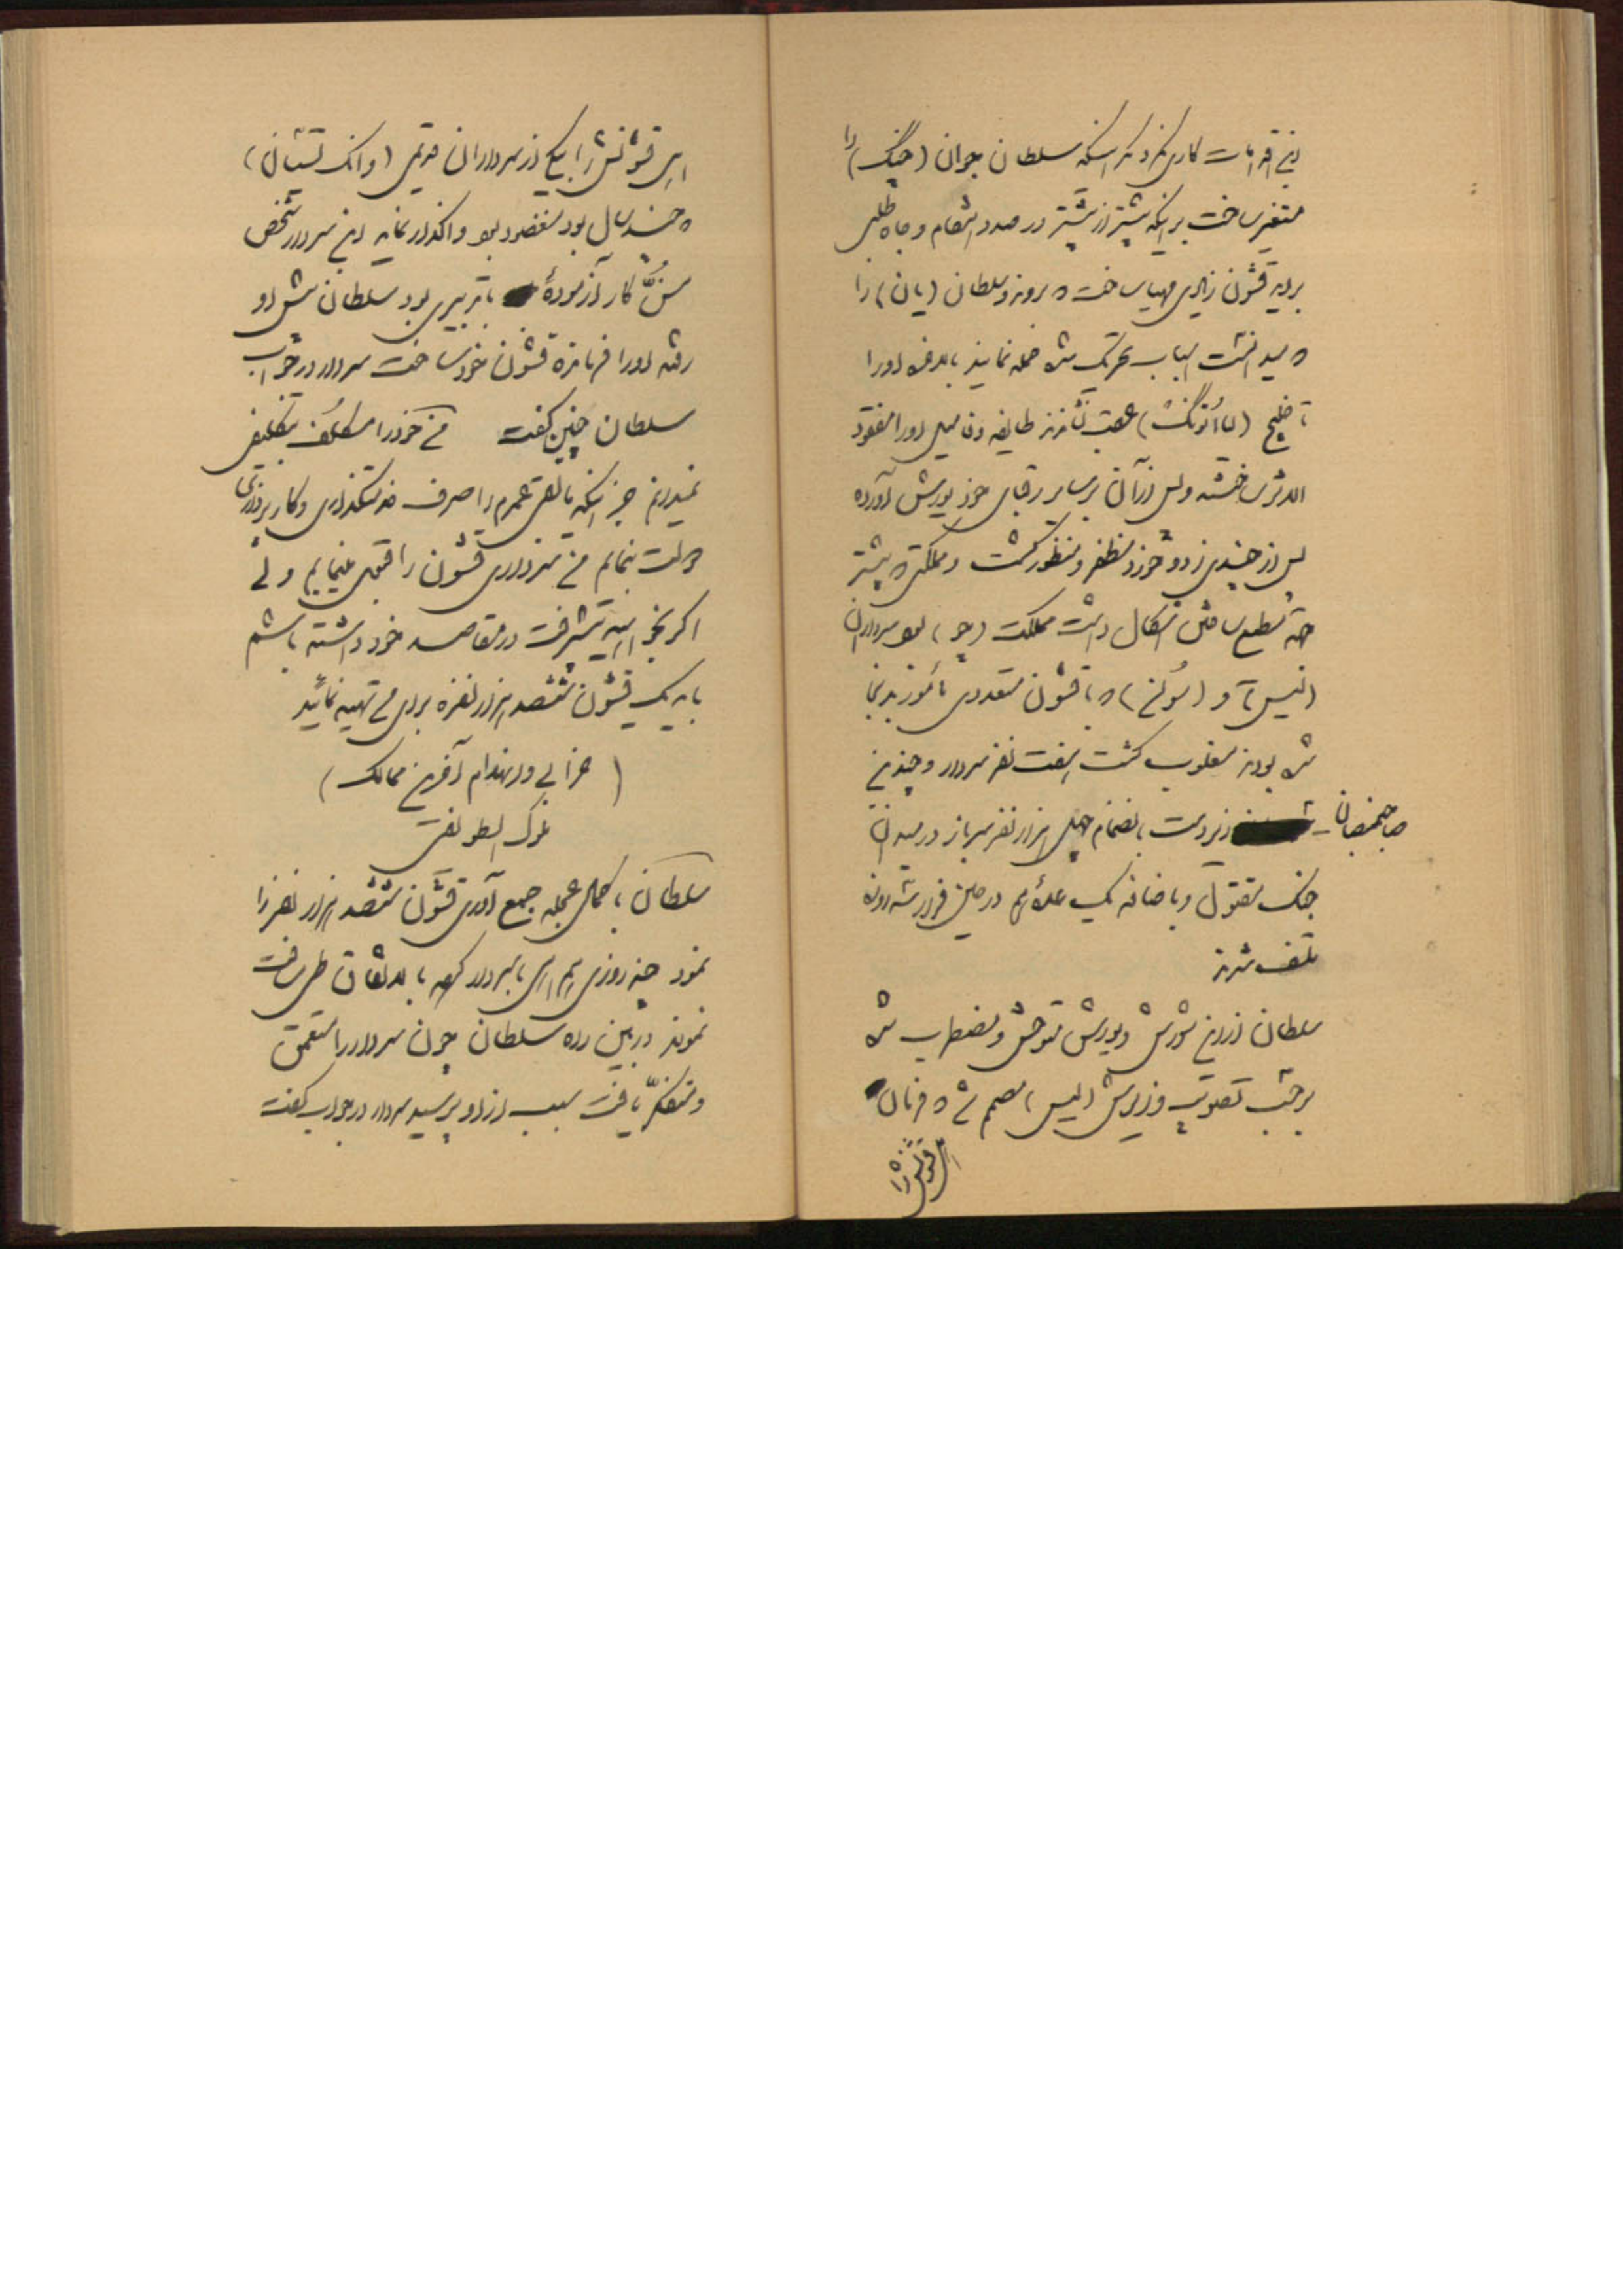 این اقدامات کاری نکرد مگر اینکه سلطان جوان (چنگ) را
متغیر ساخت بر اینکه بیشتر از پیشتر در صدد انتقام و جاه طلبی
برآید قشون زیادی مهیا ساخت و بروز سلطان (یان) را
اسباب تحریک شده حمله نماید بالاخره او را
تا خلیج (لااُتونگ) عقب نشاندند طایفه و فامیل او را مفقود
الاثر ساخته و پس از آن بر سایر رقبای خود یورش آورده
پس از چندی زد و خورد مظفر و منظور گشت و مملکتی که بیشتر
اشکال داشت مملکت (چو) بود سرداران
(لیس) و (مُونْغ) که با قشون متعددی مأمور بدانجا
شده بودند مغلوب گشت هفت نفر سردار و چندین
صاحبمنصبان زبردست بانضمام چهل هزار نفر سرباز در میدان
جنگ مقتول و باضافه یک عده هم در حین فرار
تلف شدند
سلطان از این شورش و یورش متوحش و مضطرب شده
برحسب تصویب وزیرش (لیس) مصمم شد که فرمان
این قشونش را
این قشونش را بیکی از سرداران قدیمی (وانک تسیان)
که چند سال بود مغضوب بود واگذار نماید این سردار شخص
مسنّ کار آزمودهٔ با تدبیری بود سلطان پیش او
رفته او را فرمانده قشون خود ساخت سردار در جواب
سلطان چنین گفت من خود را مکلف بتکلیفی
نمیدانم جز اینکه مابقی عمرم را صرف خدمتگذاری و کار پردازی
دولت بنمایم من سرداری قشون را قبول مینمایم ولی
اگر بخواهید پیشرفت در مقاصد خود داشته باشم
باید یک قشون ششصد هزار نفره برای من تهیه نمائید
(خرابی و انهدام آخرین ممالک)
ملوک الطوایفی
سلطان با کمال عجله جمع آوری قشون ششصد هزار نفر را
نمود چند روزی هم با سردار کهنه بالاتفاق طی مسافت
نمودند در بین راه سلطان چون سردار را متعمق
و متفکر یافت سبب از او پرسید سردار در جواب گفت